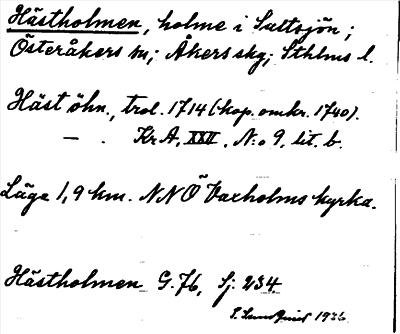 Hästholmen, holme i Saltsjön;
Österåkers sn; Åkers skg; Sthlms l.
Häst öhn., trol. 1714 (kop. omkr. 1740).
— . Kr A, XXII, N:o 9, lit. b.
Läge 1,9 km. NNÖ Vaxholms kyrka.
Hästholmen G. 76, Sj. 234
1936